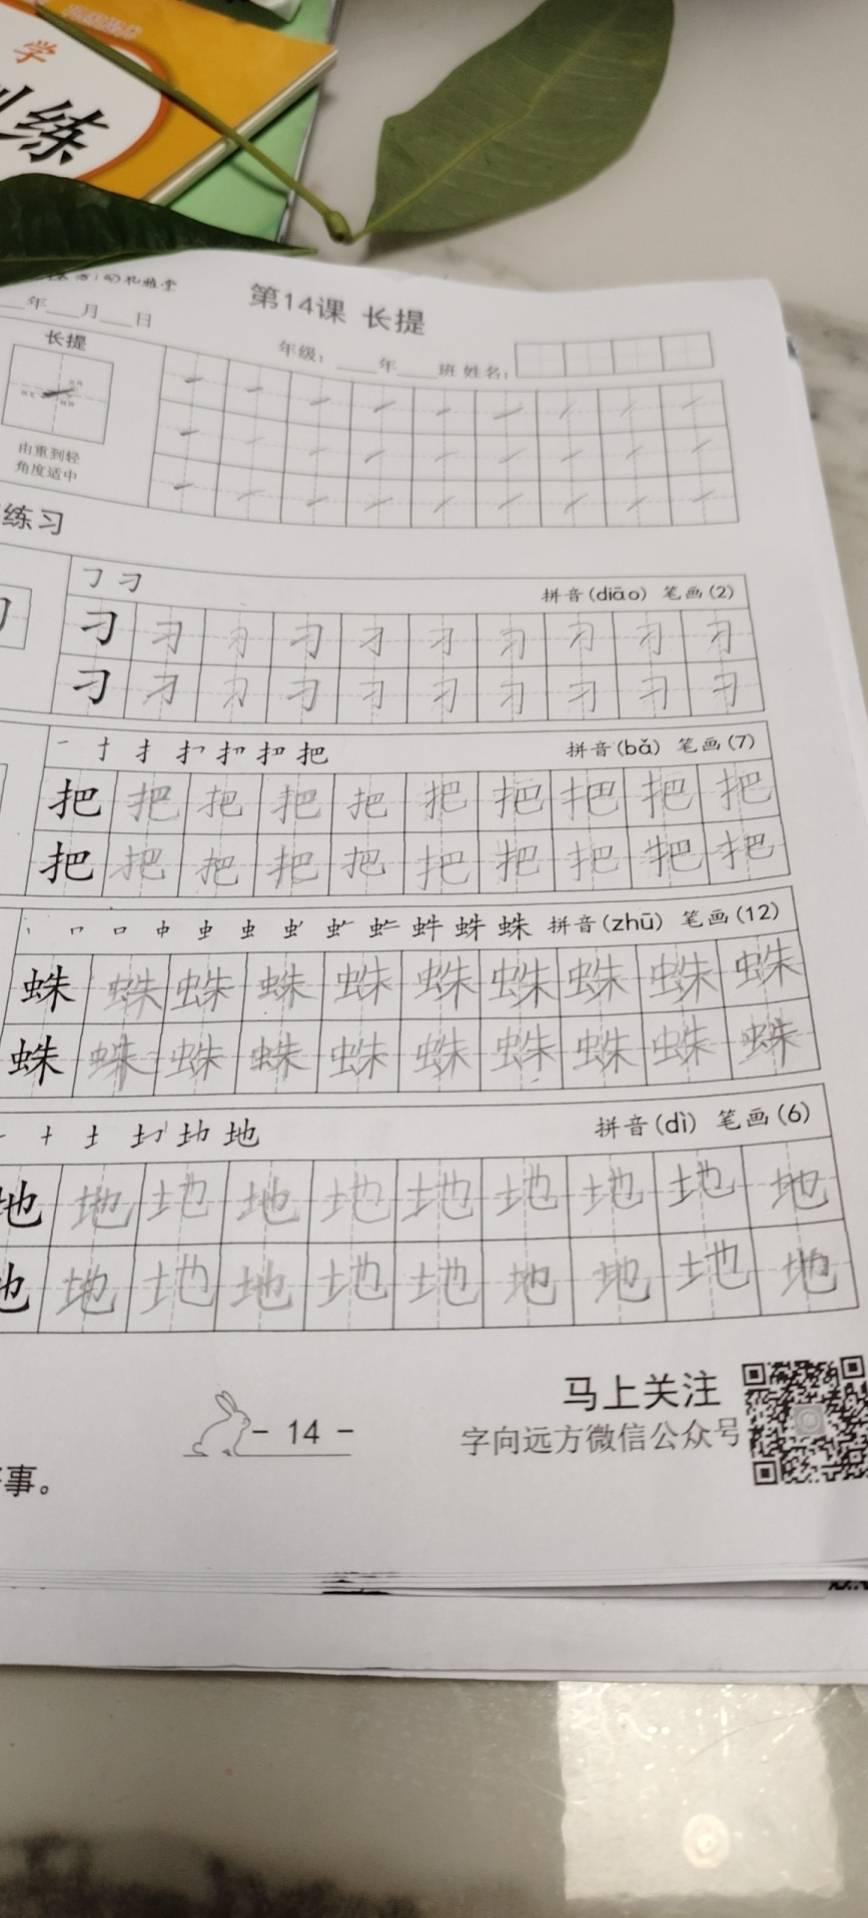 学
训练
第14课 长提
年 月 日
年级： 年 班 姓名：
长提
由重到轻
角度适中
练习
㇆ 刁
拼音(diāo) 笔画(2)
刁 刁 刁 刁 刁 刁 刁 刁 刁 刁
刁 刁 刁 刁 刁 刁 刁 刁 刁 刁
拼音(bǎ) 笔画(7)
把 把 把 把 把 把 把 把 把 把
把 把 把 把 把 把 把 把 把 把
拼音(zhū) 笔画(12)
蛛 蛛 蛛 蛛 蛛 蛛 蛛 蛛 蛛 蛛
蛛 蛛 蛛 蛛 蛛 蛛 蛛 蛛 蛛 蛛
拼音(dì) 笔画(6)
地 地 地 地 地 地 地 地 地 地
地 地 地 地 地 地 地 地 地 地
马上关注
字向远方微信公众号
- 14 -
事。